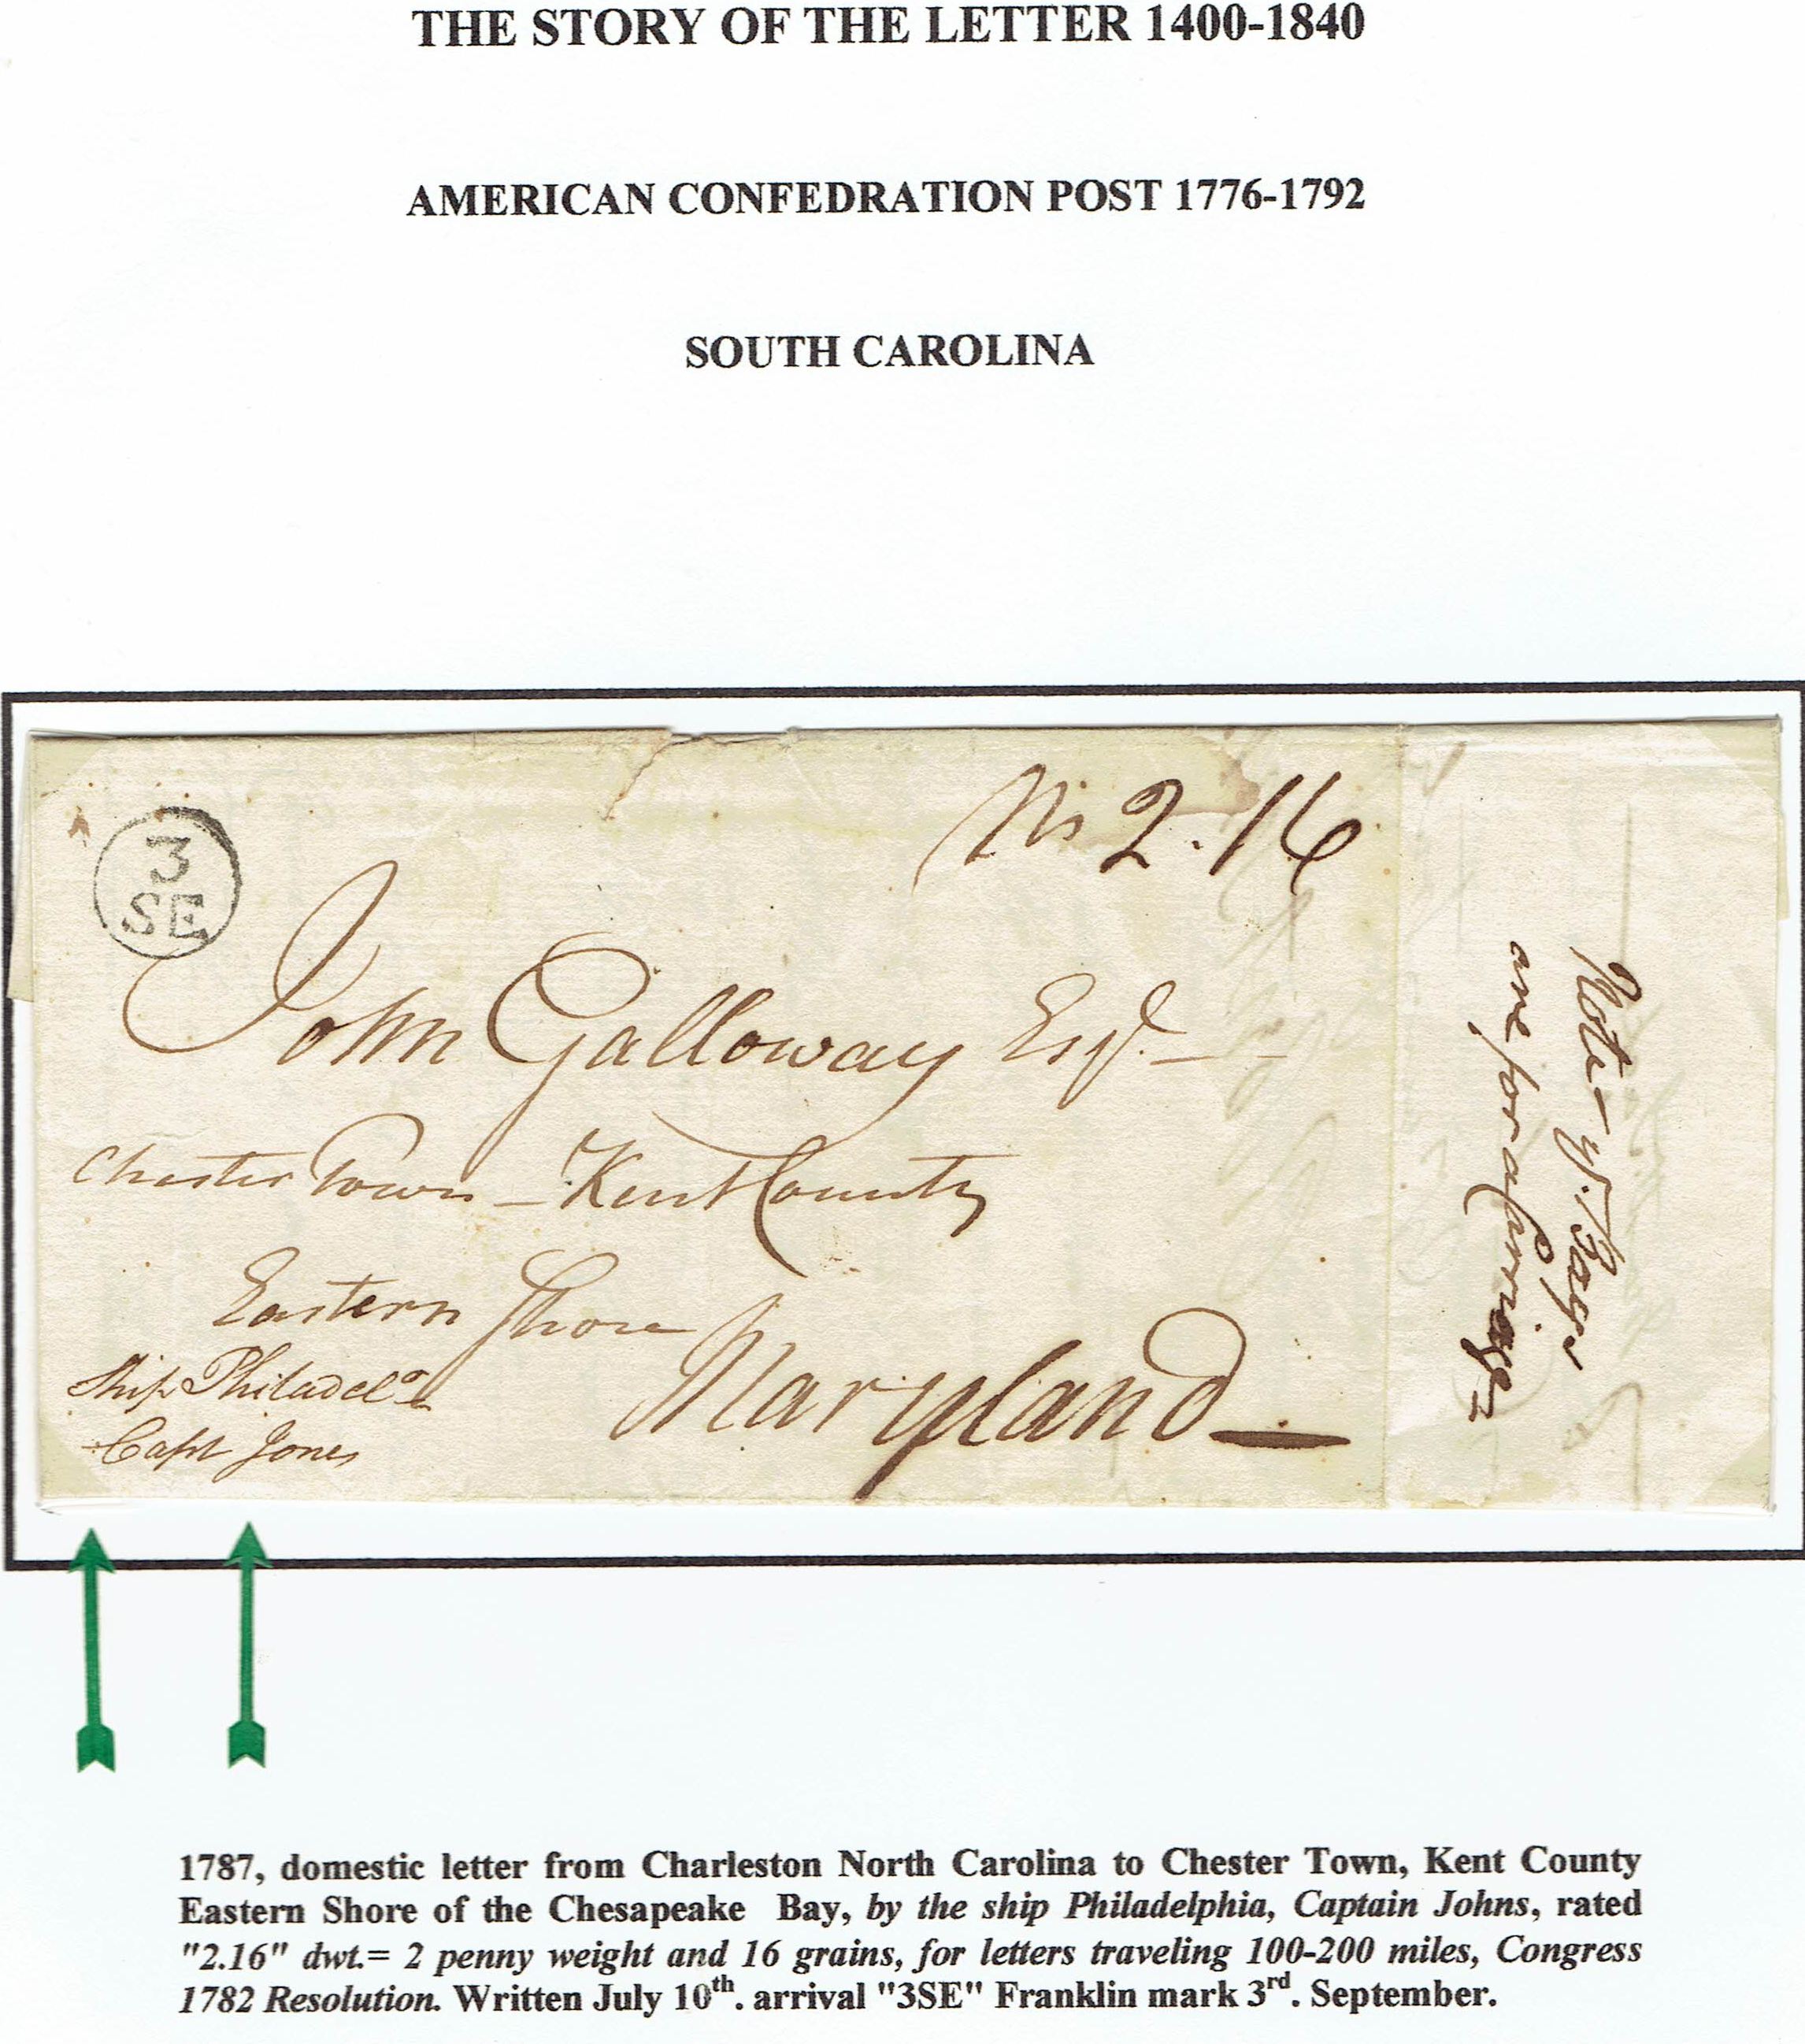 THE STORY OF THE LETTER 1400-1840
AMERICAN CONFEDRATION POST 1776-1792
SOUTH CAROLINA
3
SE
2.16
John Galloway Esqr.
Chester Town - Kent County
Eastern Shore
Maryland
Ship Philadela
Capt Jones
Note
one for a Carriage
1787, domestic letter from Charleston North Carolina to Chester Town, Kent County
Eastern Shore of the Chesapeake Bay, by the ship Philadelphia, Captain Johns, rated
"2.16" dwt.= 2 penny weight and 16 grains, for letters traveling 100-200 miles, Congress
1782 Resolution. Written July 10th. arrival "3SE" Franklin mark 3rd. September.